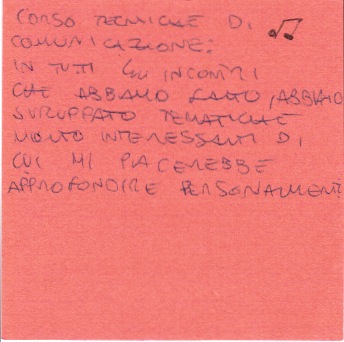 CORSO TECNICHE DI
COMUNICAZIONE:
IN TUTI GLI INCONTRI
CHE ABBIAMO FATTO, ABBIAMO
SVILUPPATO TEMATICHE
MOLTO INTERESSANTI DI
CUI MI PIACEREBBE
APPROFONDIRE PERSONALMENTE